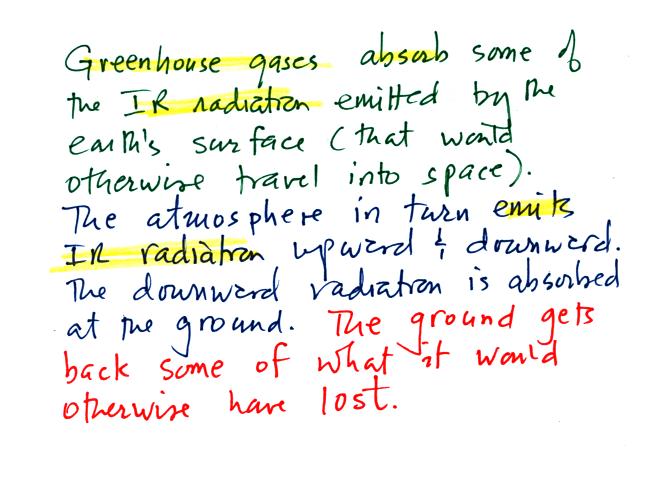 Greenhouse gases absorb some of
the IR radiation emitted by the
earth's surface (that would
otherwise travel into space).
The atmosphere in turn emits
IR radiation upward & downward.
The downward radiation is absorbed
at the ground. The ground gets
back some of what it would
otherwise have lost.